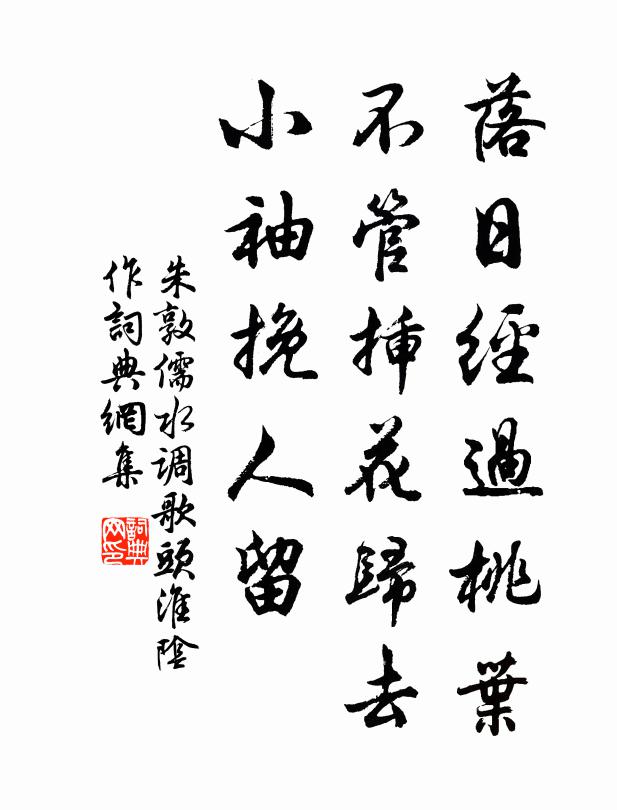 落日經過桃葉
不管插花歸去
小袖挽人留
朱敦儒水调歌頭淮陰
作詞典網集
詞典
网印